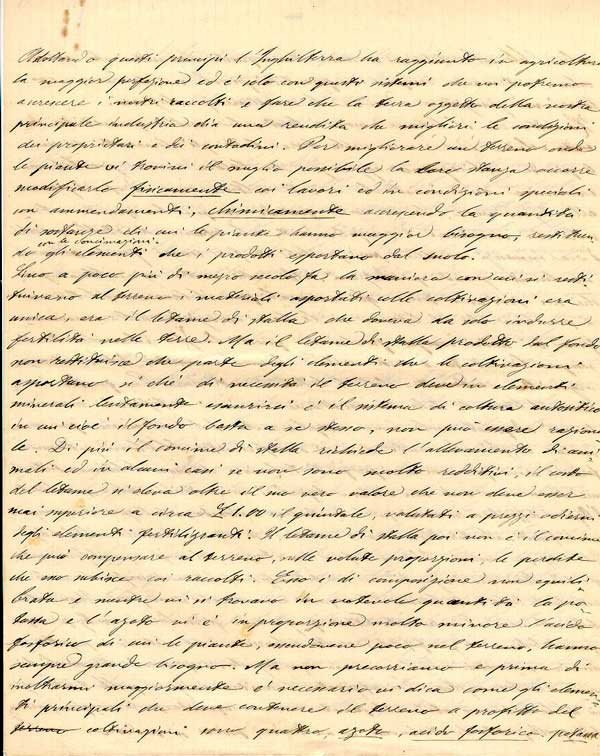 Adottando questi principi l'Inghilterra ha raggiunto in agricoltura
la maggior perfezione ed è solo con questi sistemi che noi potremo
accrescere i nostri raccolti e fare che la terra oggetto della nostra
principale industria dia una rendita che migliori le condizioni
dei proprietari e dei contadini. Per migliorare un terreno onde
le piante vi trovino il meglio possibile la loro stanza occorre
modificarlo fisicamente coi lavori ed in condizioni speciali
con ammendamenti, chimicamente accrescendo la quantità
di sostanze di cui le piante hanno maggior bisogno, restituen
con le concimazioni.
do gli elementi che i prodotti esportano dal suolo.
Sino a poco più di mezzo secolo fa la maniera con cui si resti
tuivano al terreno i materiali asportati colle coltivazioni era
unica, era il letame di stalla che doveva da solo indurre
fertilità nelle terre. Ma il letame di stalla prodotto sul fondo
non restituisce che parte degli elementi che le coltivazioni
asportano sì ché di necessità il terreno deve in elementi
minerali lentamente esaurirsi e il sistema di coltura
in cui cioè il fondo basta a se stesso, non può essere raziona
le. Di più il concime di stalla richiede l'allevamento di ani
mali ed in alcuni casi se non sono molto redditivi, il costo
del letame si eleva oltre il suo vero valore che non deve esser
mai superiore a circa £1.00 il quintale, valutati a prezzi odierni
degli elementi fertilizzanti. Il letame di stalla poi non è il concime
che può compensare al terreno, nelle volute proporzioni, le perdite
che esso subisce coi raccolti. Esso è di composizione non equili
brata e mentre vi si trovano in notevole quantità la po
tassa e l'azoto vi è in proporzione molto minore l'acido
fosforico di cui le piante, essendovene poco nel terreno, hanno
sempre grande bisogno. Ma non precorriamo e prima di
inoltrarmi maggiormente è necessario vi dica come gli elemen
ti principali che deve contenere il terreno a profitto del
terreno coltivazioni son quattro, azoto, acido fosforico, potassa